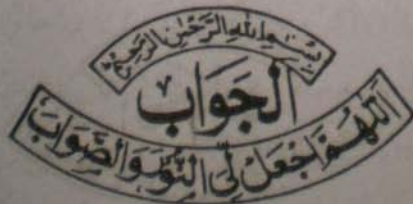 بِسْمِ اللهِ الرَّحْمٰنِ الرَّحِيْمِ
اَلْجَوَابْ
اَللّٰهُمَّ اجْعَلْ لِّی النُّوْرَ وَالصَّوَابَ